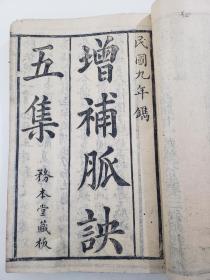 民國九年鐫
增補脈訣
五集
務本堂藏板